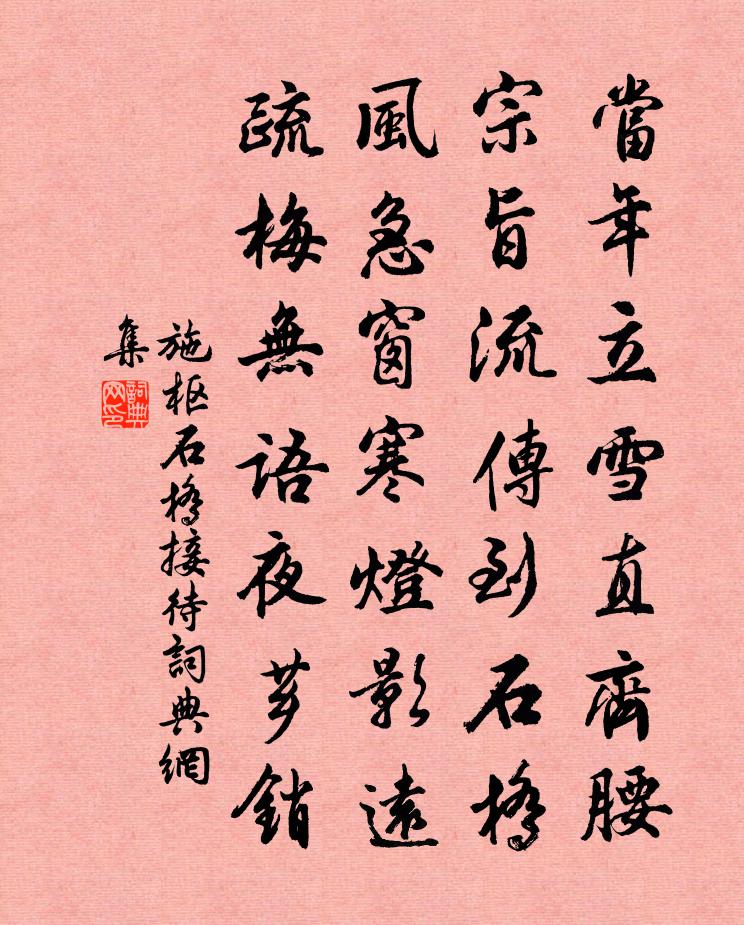 當年立雪直齊腰
宗旨流傳到石橋
風急窗寒燈影遠
疏梅無語夜芗銷
施枢石橋接待詞典網
集
詞典网印